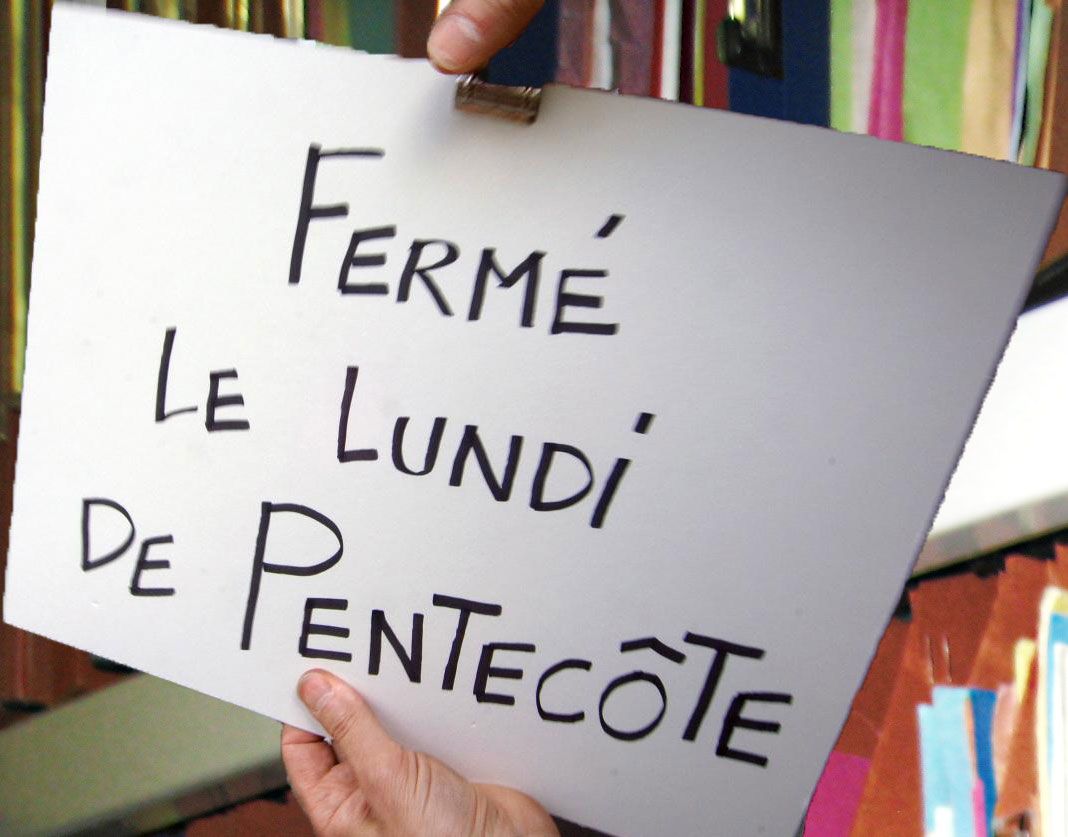 FERMÉ
LE LUNDi
DE PENTECÔTE